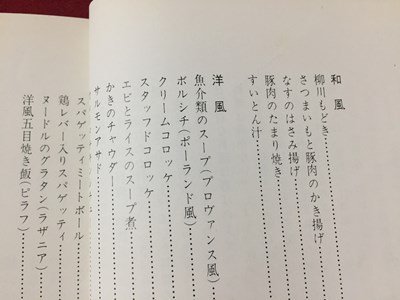 和風
柳川もどき
さつまいもと豚肉のかき揚げ
なすのはさみ揚げ
豚肉のたまり焼き
すいとん汁
洋風
魚介類のスープ(プロヴァンス風)
ボルシチ(ポーランド風)
クリームコロッケ
スタッフドコロッケ
エビとライスのスープ煮
かきのチャウダー
サルモンアサド
スパゲッティミートボール
鶏レバー入りスパゲッティ
ヌードルのグラタン(ラザニア)
洋風五目焼き飯(ピラフ)